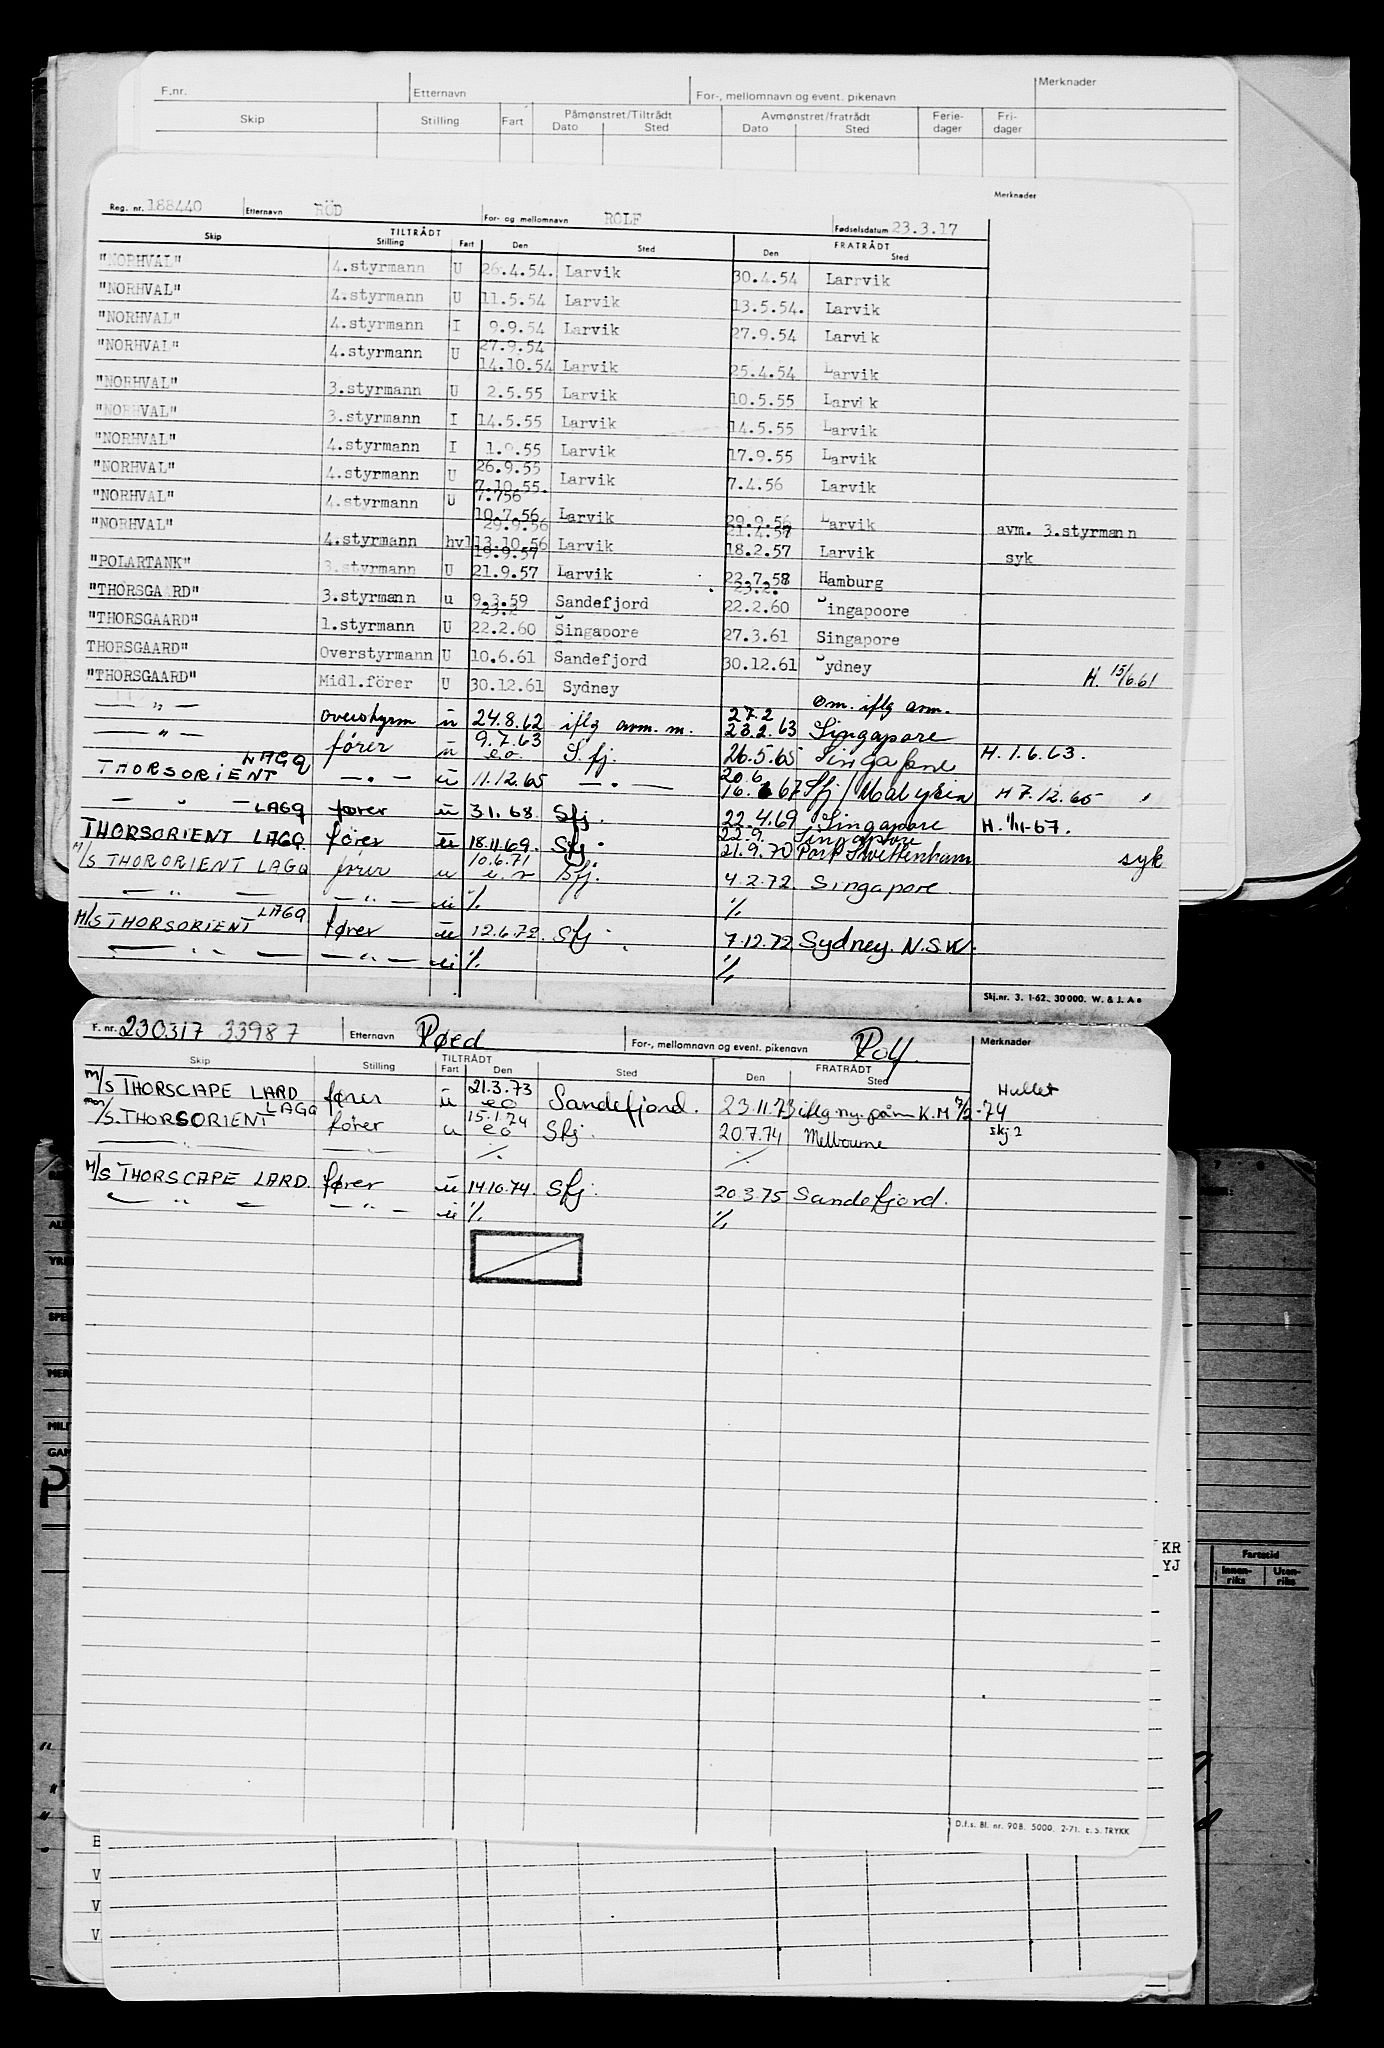 F.nr. Etternavn For-, mellomnavn og event. pikenavn Merknader
Skip Stilling Fart Påmønstret/Tiltrådt Dato Sted Avmønstret/fratrådt Dato Sted Ferie-dager Fri-dager
Merknader
Reg. nr. 188440 Etternavn RÖD For- og mellomnavn ROLF Fødselsdatum 23.3.17
Skip TILTRÅDT Stilling Fart Den Sted FRATRÅDT Den Sted
"NORHVAL" 4.styrmann U 26.4.54. Larvik 30.4.54 Larrvik
"NORHVAL" 4.styrmann U 11.5.54 Larvik 13.5.54. Larvik
"NORHVAL" 4.styrmann I 9.9.54 Larvik 27.9.54 Larvik
"NORHVAL" 4.styrmann U 27.9.54 14.10.54 Larvik 25.4.54 Larvik
"NORHVAL" 3.styrmann U 2.5.55 Larvik 10.5.55 Larvik
"NORHVAL" 3.styrmann I 14.5.55 Larvik 14.5.55 Larvik
"NORHVAL" 4.styrmann I 1.9.55 Larvik 17.9.55 Larvik
"NORHVAL" 4.styrmann U 26.9.55 7.10.55. Larvik 7.4.56 Larvik
"NORHVAL" 4.styrmann U 7.756 10.7.56 Larvik 29.9.56 Larvik avm. 3.styrmann
"NORHVAL" 4.styrmann hvl 29.9.56 13.10.56 Larvik 21.4.57 18.2.57 Larvik syk
"POLARTANK" 3.styrmann U 19.9.57 21.9.57 Larvik 22.7.58 Hamburg
"THORSGAARD" 3.styrmann u 9.3.59 Sandefjord 23.2. 22.2.60 Singapoore
"THORSGAARD" 1.styrmann U 23.2 22.2.60 Singapore 27.3.61 Singapore
THORSGAARD" Overstyrmann U 10.6.61 Sandefjord 30.12.61 Sydney H. 15/6.61
"THORSGAARD" Midl.förer U 30.12.61 Sydney om. iflg avm.
— " — overstyrm u 24.8.62 iflg avm. m. 27.2 23.2.63 Singapore
— " — fører u 9.7.63 eo. S.fj. 26.5.65 Singapore H. 1.6.63.
THORSORIENT LAGQ — " — u 11.12.65 — " — 20.6 16.6.67 Sfj / Malysia H 7.12.65
— " — LAGQ fører u 3.1.68. Sfj. 22.4.69 Singapore H. 1/11-67.
THORSORIENT LAGQ. fører u 18.11.69. Sfj. 22.9. Singapore 21.9.70 Port Swettenham syk
M/S THORORIENT LAGQ fører u 10.6.71 Sfj. 4.2.72. Singapore
— " — — " — u % %
M/S THORSORIENT LAGQ. fører u 12.6.72. Sfj. 7.12.72 Sydney. N.S.W.
— " — — " — u % %
Skj.nr. 3. 1-62. 30000. W. & J. A s
F. nr. 230317 33987 Etternavn Røed For-, mellomnavn og event. pikenavn Rolf. Merknader
Skip Stilling TILTRÅDT Fart Den Sted FRATRÅDT Den Sted
M/S THORSCAPE LARD fører u 21.3.73 eo Sandefjord. 23.11.73 iflg ny. påm K.M 7/2-74 Hullet
M/S. THORSORIENT LAGQ fører u 15.1.74 eo Sfj. 20.7.74 Melbourne skj 2
— " — — " — % %
M/S THORSCAPE LARD. fører u 14.10.74. Sfj. 20.3.75 Sandefjord.
— " — — " — u % %
D.f.s. Bl. nr. 90B. 5000. 2-71. E. S. TRYKK
KR
YJ
Fartstid
Innen-riks Uten-riks